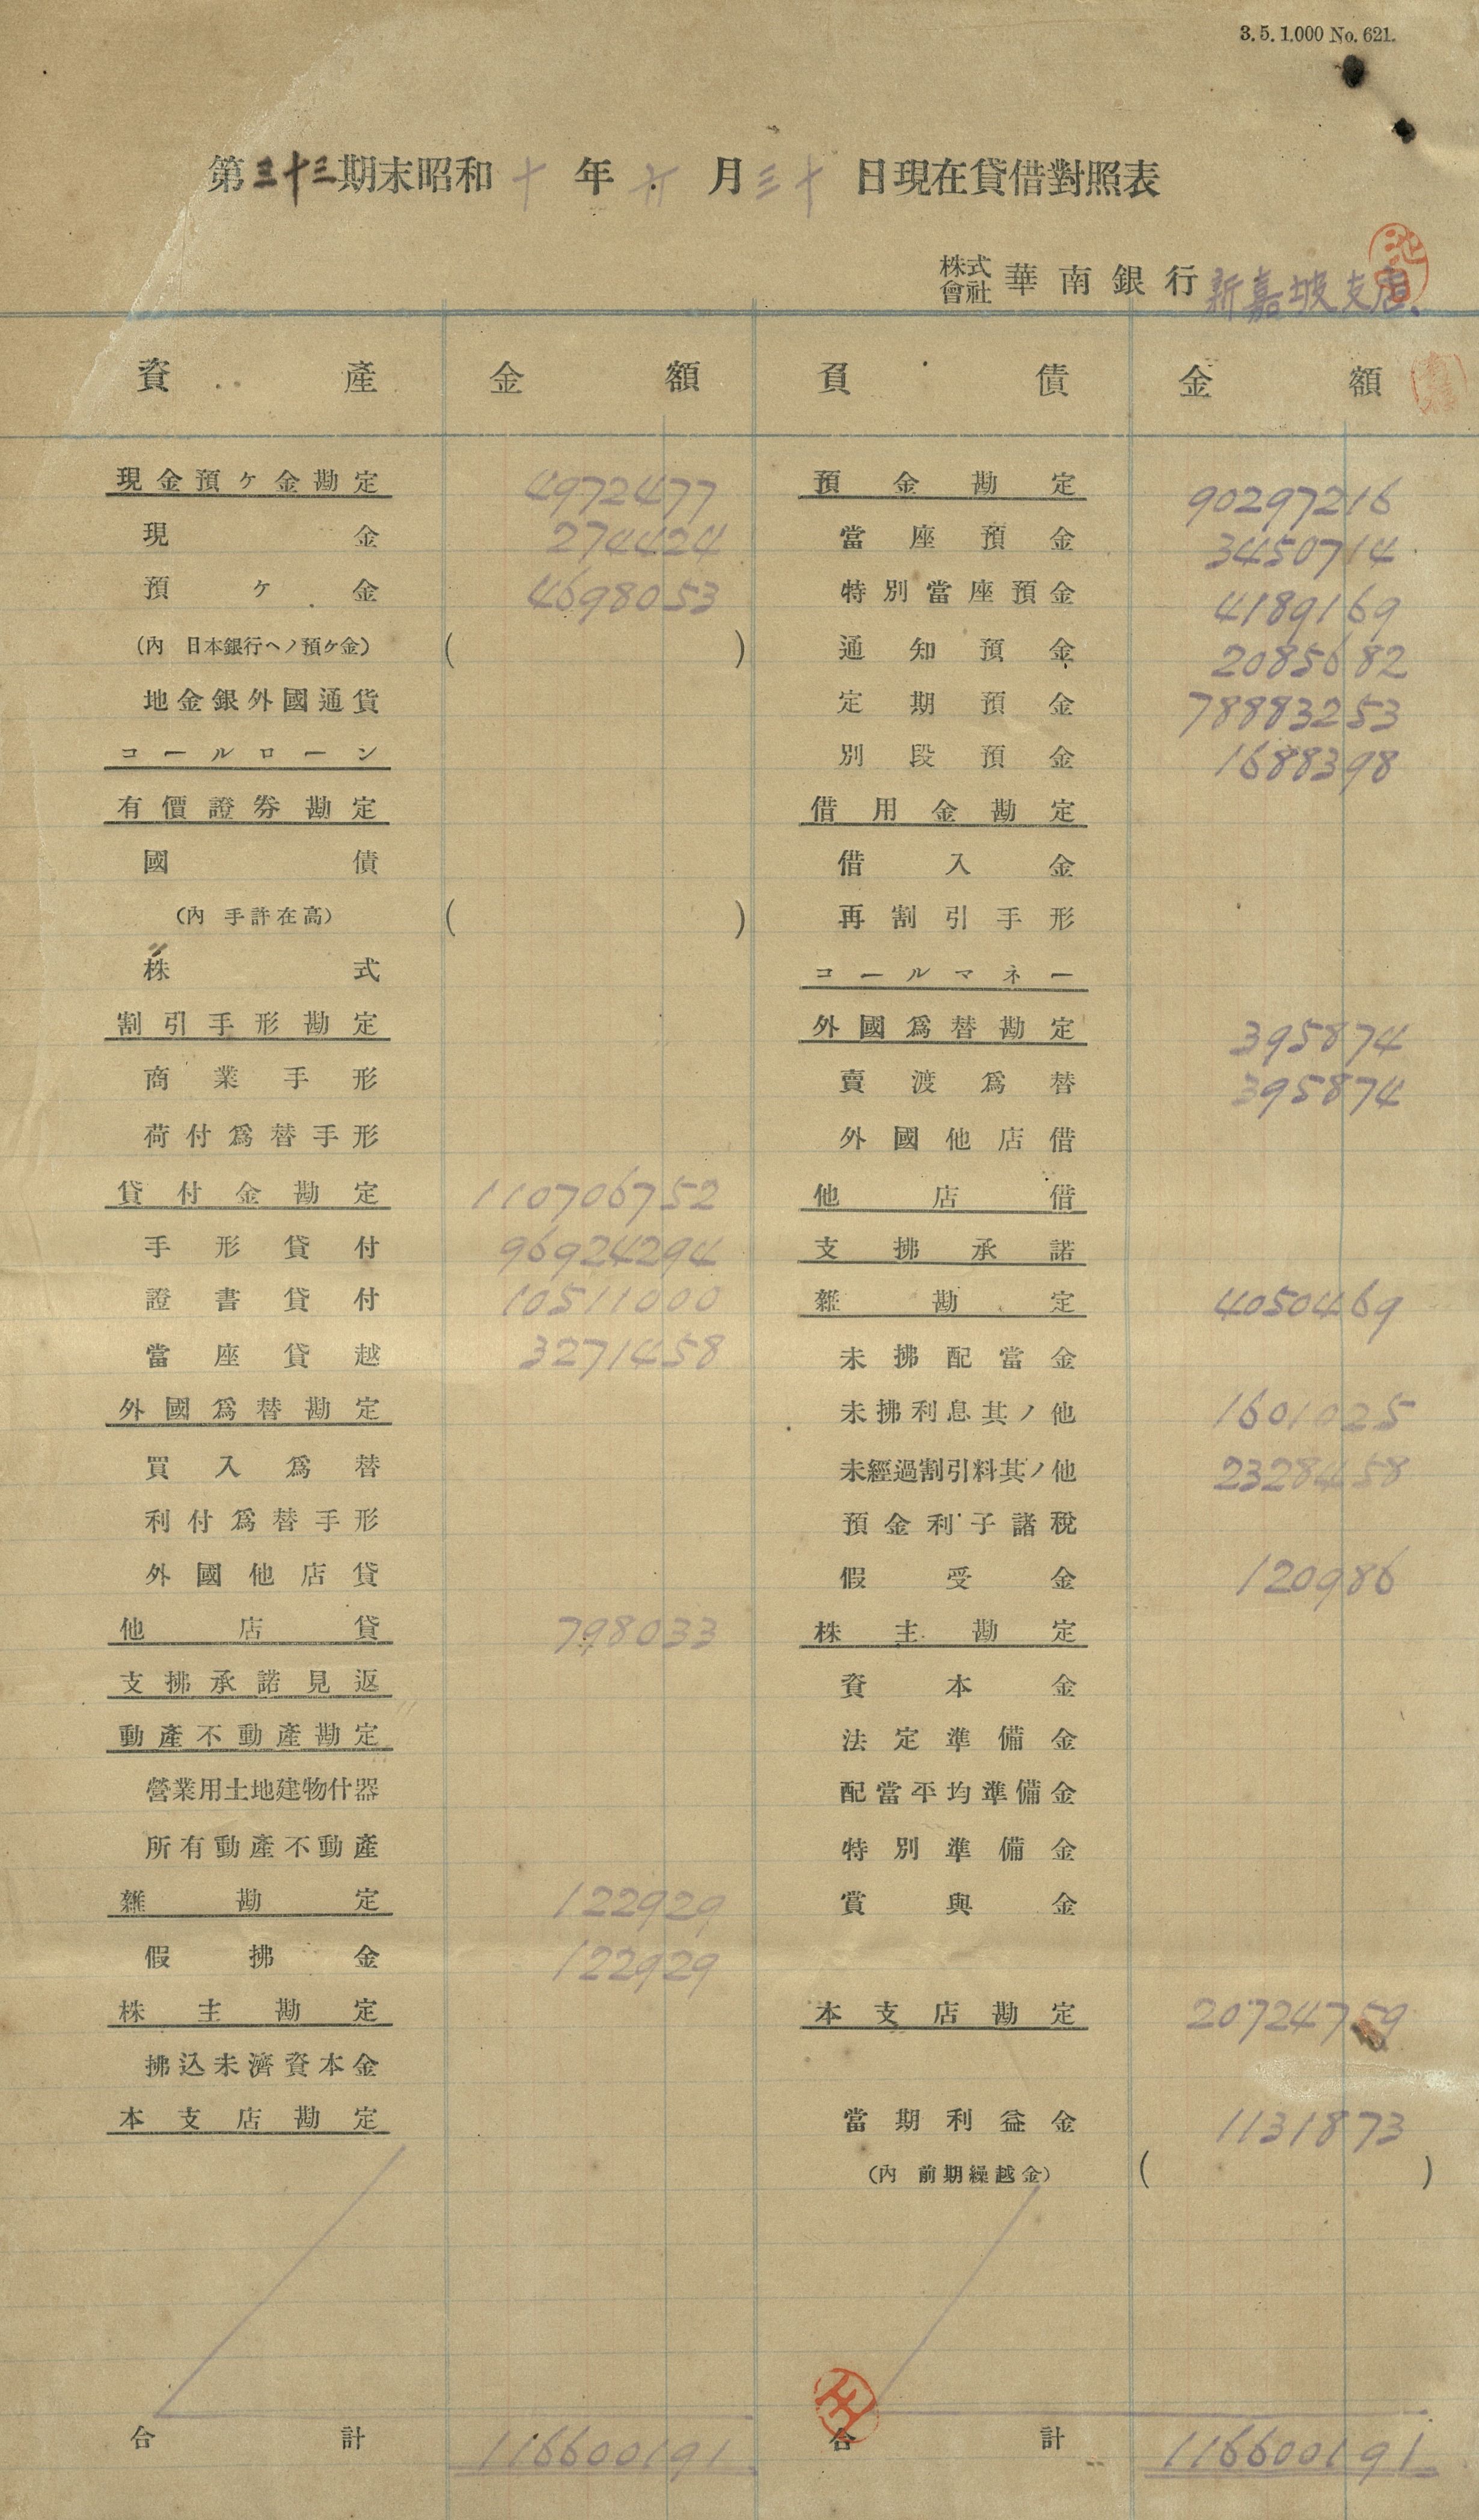 3. 5. 1,000 No. 621.
第三十三期末昭和十年六月三十日現在貸借對照表
株式會社 華南銀行 新嘉坡支店
資產 金額 負債 金額
現金預ケ金勘定 4972477 預金勘定 90297216
現金 274424 當座預金 3450714
預ケ金 4698053 特別當座預金 4189169
(內 日本銀行ヘノ預ケ金) ( ) 通知預金 2085682
地金銀外國通貨 定期預金 78883253
コールローン 別段預金 1688398
有價證券勘定 借用金勘定
國債 借入金
(內 手許在高) ( ) 再割引手形
株式 コールマネー
割引手形勘定 外國爲替勘定 395874
商業手形 賣渡爲替 395874
荷付爲替手形 外國他店借
貸付金勘定 110706752 他店借
手形貸付 96924294 支拂承諾
證書貸付 10511000 雜勘定 4050469
當座貸越 3271458 未拂配當金
外國爲替勘定 未拂利息其ノ他 1601025
買入爲替 未經過割引料其ノ他 2328458
利付爲替手形 預金利子諸稅
外國他店貸 假受金 120986
他店貸 798033 株主勘定
支拂承諾見返 資本金
動產不動產勘定 法定準備金
營業用土地建物什器 配當平均準備金
所有動產不動產 特別準備金
雜勘定 122929 賞與金
假拂金 122929
株主勘定 本支店勘定 20724759
拂込未濟資本金
本支店勘定 當期利益金 1131873
(內 前期繰越金) ( )
合計 116600191 合計 116600191